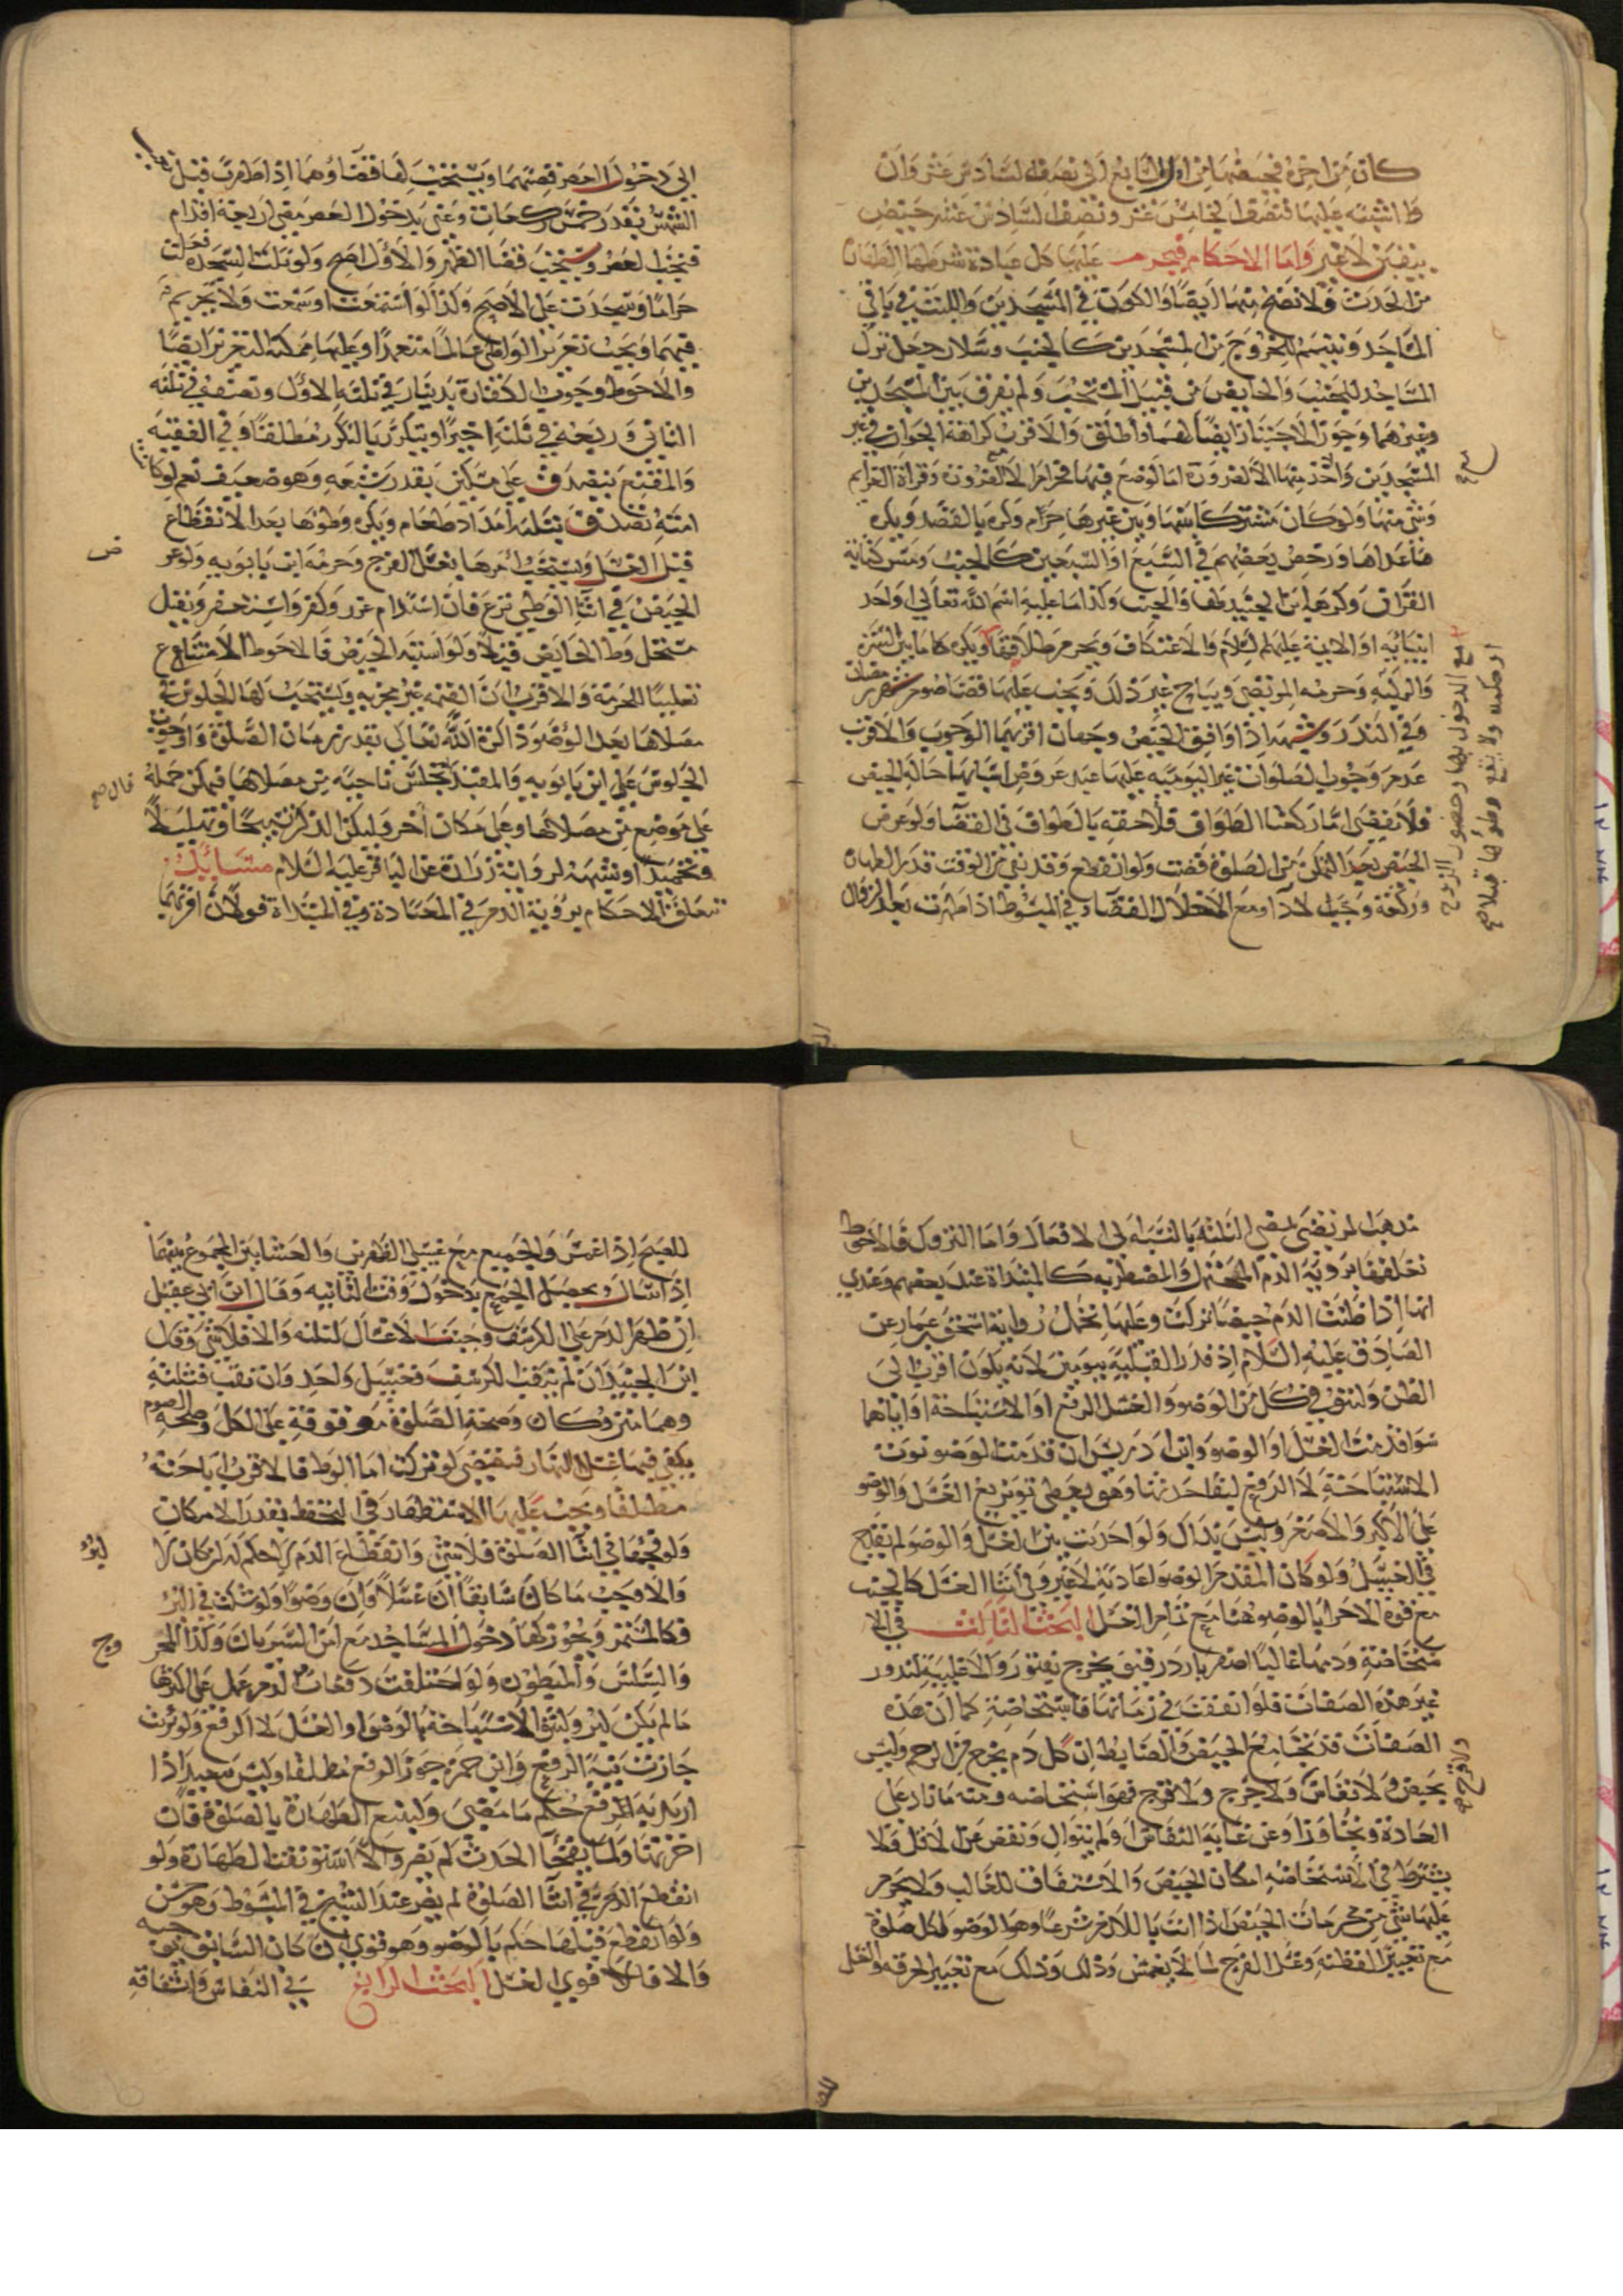 كان من اخره فحيضها من اول السابع الى نصف السادس عشر وان
اشتبه عليها فنصف الخامس عشر ونصف السادس عشر حيض
بيقين لاغير واما الاحكام فيحرم عليها كل عبادة شرطها الطهارة
من الحدث ولا تصح منها ايضا والكون في المسجدين واللبث في باقي
المساجد وتتيمم للخروج من المسجدين كالجنب وسلار جعل نزول
المساجد للجنب والحايض من قبيل المستحب ولم يفرق بين المسجدين
وغيرهما وجوز الاجتياز ايضا لهما واطلق والاقرب كراهة الجواز في غير
المسجدين والاخذ منها الا لضرورة اما الوضع فيها فحرام لا لضرورة وقراة العزايم
وشي منها ولو كان مشتركا بينها وبين غيرها حرام وكره بالقصد ويكره
ما عداها ورخص بعضهم في السبع او السبعين كالجنب ومس كتابة
القران وكرهه ابن الجنيد لها والجنب وكذا ما عليه اسم الله تعالى او احد
انبيائه او الايمة عليهم السلام والاعتكاف ويحرم طلاقها ويكره ما بين السرة
والركبة وحرمه المرتضى ويباح غير ذلك ويجب عليها قضا صوم شهر رمضان
وفي النذر وشبهه اذا وافق الحيض وجهان اقربهما الوجوب والاقرب
عدم وجوب الصلوات غير اليومية عليها عند عروض اسبابها حالة الحيض
فلا تقضى اما ركعتا الطواف فلاحقة بالطواف في القضا ولو عرض
الحيض بعد التمكن من الصلوة قضت ولو انقطع وقد بقي من الوقت قدر الطهارة
وركعة وجب الادا ومع الاخلال القضا وفي المبسوط اذا طهرت بعد الزوال
مع الدخول بها وحضور الزوج
او حكمه ولا يقع وطؤها قبلا صح
الى دخول العصر قضتهما ويستحب لها قضاوهما اذا طهرت قبل مغيب
الشمس بقدر خمس ركعات وعني بدخول العصر مضي اربعة اقدام
فتجب العصر ويستحب قضا الظهر والاول اصح ولو تلت السجدة فعلت
حراما وسجدت على الاصح وكذا لو استمعت او سمعت ولا تحريم
فيهما ويجب تعزير الواطي عالما متعمدا وعليها ممكنة التعزير ايضا
والاحوط وجوب الكفارة بدينار في ثلثه الاول ونصف في ثلثه
الثاني وربعه في ثلثه اخيرا ويتكرر بالتكرر مطلقا وفي الفقيه
والمقنع يتصدق على مسكين بقدر شبعه وهو ضعيف نعم لو كانت
امته تصدق بثلثة امداد طعام ويكره وطؤها بعد الانقطاع
قبل الغسل ويستحب امرها بغسل الفرج وحرمه ابن بابويه ولو عرض
الحيض في اثنا الوطي نزع فان استدام عزر وكفر واستغفر ويقتل
مستحل وطا الحايض قبلا ولو اشتبه الحيض فالاحوط الامتناع
تغليبا للحرمة والاقرب ان القيمة غير مجزيه ويستحب لها الجلوس في
مصلاها بعد الوضو ذاكرة الله تعالى بقدر زمان الصلوة واوجب
الجلوس علي ابن بابويه والمفيد تجلس ناحية من مصلاها فيمكن حمله
على موضع من مصلاها وعلى مكان اخر وليكن الذكر تسبيحا وتهليلا
وتحميدا وشبهه لرواية زرارة عن الباقر عليه السلام مسايل
تتعلق الاحكام برؤية الدم في المعتادة وفي المبتداة قولان اقربهما
مذهب المرتضى لمضي الثلثة بالنسبة الى الافعال واما التروك فالاحوط
تعلقها برؤية الدم المحتمل والمضطربه كالمبتداة عند بعضهم وعندي
انها اذا ظنت الدم حيضا تركت وعليها تحمل رواية اسحق بن عمار عن
الصادق عليه السلام اذ قدر القبلية بيومين لانه يكون اقرب الى
الظن ولتنو في كل من الوضو والغسل الرفع او الاستباحة او اياهما
سوا قدمت الغسل او الوضو وابن ادريس ان قدمت الوضو نوت
الاستباحة لا الرفع لبقا حدثها وهو يعطي توزيع الغسل والوضو
على الاكبر والاصغر وليس بدال ولو احدثت بين الغسل والوضو لم يقدح
في الغسل ولو كان المقدم الوضو اعادته لاغير وفي اثنا الغسل كالجنب
مع قوة الاجزا بالوضو هنا مع تمام الغسل البحث الثالث في الا
ستحاضة ودمها غالبا اصفر بارد رقيق يخرج بفتور والاغلبية لندور
غير هذه الصفات فلو اتفقت في زمانها فاستحاضة كما ان هذه
الصفات قد تجامع الحيض والضابط ان كل دم يخرج من الرحم وليس
بحيض ولا نفاس ولا جرح ولا قرح فهو استحاضه ومنه ما زاد على
العادة وتجاوز او عن غاية النفاس او لم يتوال ونقص عن الاقل ولا
يشترط في الاستحاضه امكان الحيض والاستقاف للغالب ولا يحرم
عليها شي من محرمات الحيض اذا اتت باللازم شرعا وهو الوضو لكل صلوة
مع تغيير القطنة وغسل الفرج لما لا يغمس وذلك وذلك مع تغيير الخرقه والغسل
للصبح اذا غمس والجميع مع غسلي الظهرين والعشائين المجموع بينهما
اذا سال ويحصل الجمع بدخول وقت الثانيه وقال ابن ابي عقيل
ان ظهر الدم على الكرسف وجبت الاغسال الثلثه والا فلا شي وقال
ابن الجنيد ان لم يثقب الكرسف فغسل واحد وان ثقب فثلثة
وهما متروكان وصحة الصلوة موقوفة على الكل وصحة الصوم
يكفي فيها غسل النهار فتقضي لو تركت اما الوطي فالاقرب اباحته
مطلقا ويجب عليها الاستظهار في التحفظ بقدر الامكان
ولو فجئها في اثنا الصلوة فلا شي وانقطاع الدم لا حكم له ان كان لا
والا وجب ما كان سابقا ان غسلا وان وضوا ولو شكت في البرؤ
فكالمستمر ويجوز لها دخول المساجد مع امن السريان وكذا المجروح
والسلس والمبطون ولو اختلفت دفعات الدم عمل على اكثرها
ما لم يكن لبرؤ ولتنو الاستباحة بالوضو او الغسل لا الرفع ولو برئت
جازت نية الرفع وابن حمزة جوز الرفع مطلقا وليس ببعيد اذا
اريد به الرفع حكم ما مضى وليتبع الطهارة بالصلوة فان
اخرتها ولما يفجأ الحدث لم يضر والا استونفت الطهارة ولو
انقطع الدم في اثنا الصلوة لم يضر عند الشيخ في المبسوط وهو حسن
ولو انقطع قبلها حكم بالوضو وهو قوي ان كان السابق يوجبه
والا فالاقوى الغسل البحث الرابع في النفاس واشتقاقه